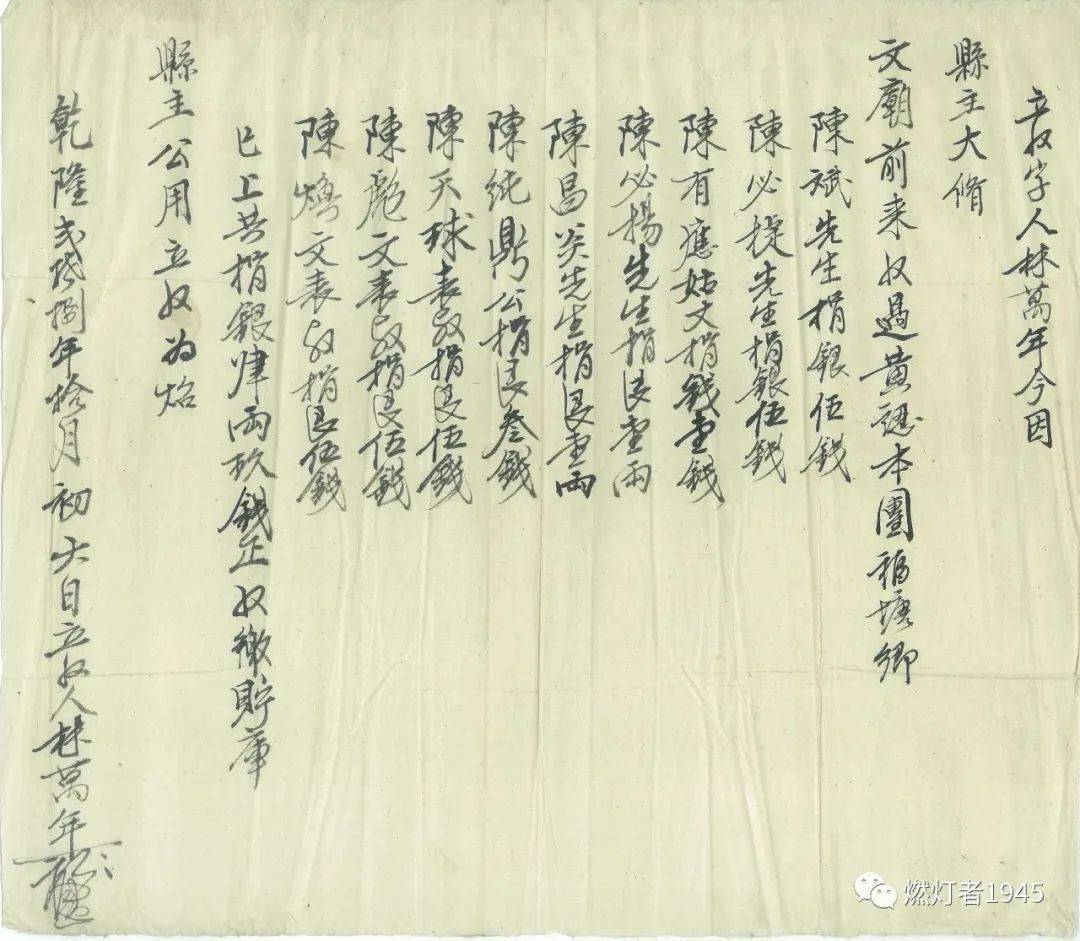 立收字人林萬年今因
縣主大脩
文廟前来收過黄瑟本團福塘鄉
陳斌先生捐銀伍錢
陳必授先生捐銀伍錢
陳有應姑丈捐錢壹錢
陳必揚先生捐艮壹兩
陳昌炎先生捐艮壹兩
陳純鼎公捐艮叁錢
陳天球表叔捐艮伍錢
陳彪文表叔捐艮伍錢
陳文表叔捐艮伍錢
已上共捐銀肆兩玖錢正收繳貯庫
縣主公用立收为炤
乾隆弍拾捌年拾月初六日立收人林萬年
燃灯者1945